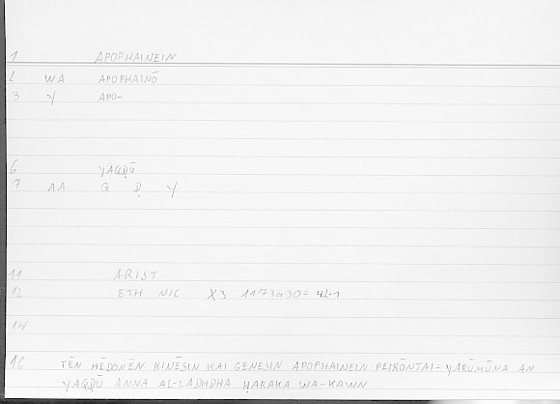 1 APOPHAINEIN
2 WA APOPHAINŌ
3 Y APO-
6 YAQḌŪ
7 AA Q Ḍ Y
11 ARIST
12 ETH NIC X3 1173a30=
14
16 TĒN HĒDONĒN KINĒSIN KAI GENESIN APOPHAINEIN PEIRŌNTAI= YARŪMŪNA AN
YAQḌŪ ANNA AL-LADHDHA ḤARAKA WA-KAWN